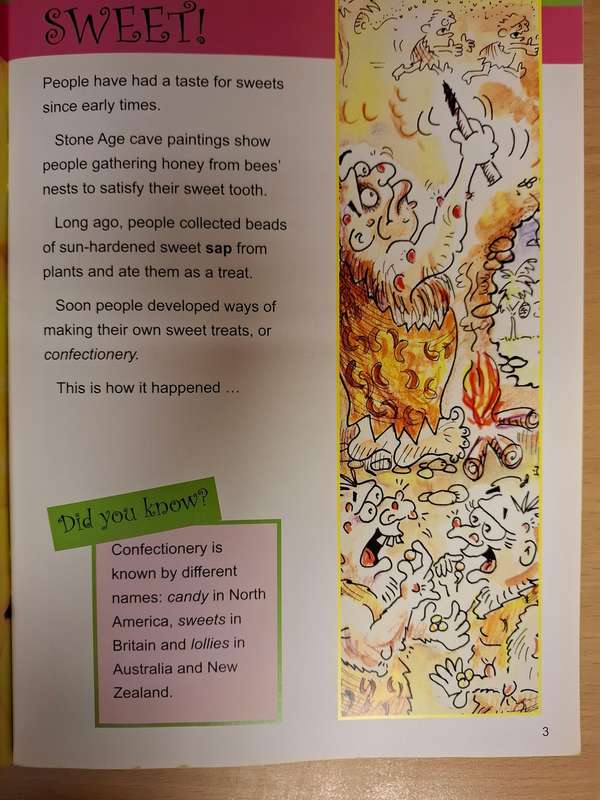 SWEET!
People have had a taste for sweets
since early times.
Stone Age cave paintings show
people gathering honey from bees'
nests to satisfy their sweet tooth.
Long ago, people collected beads
of sun-hardened sweet sap from
plants and ate them as a treat.
Soon people developed ways of
making their own sweet treats, or
confectionery.
This is how it happened …
Did you know?
Confectionery is
known by different
names: candy in North
America, sweets in
Britain and lollies in
Australia and New
Zealand.
3